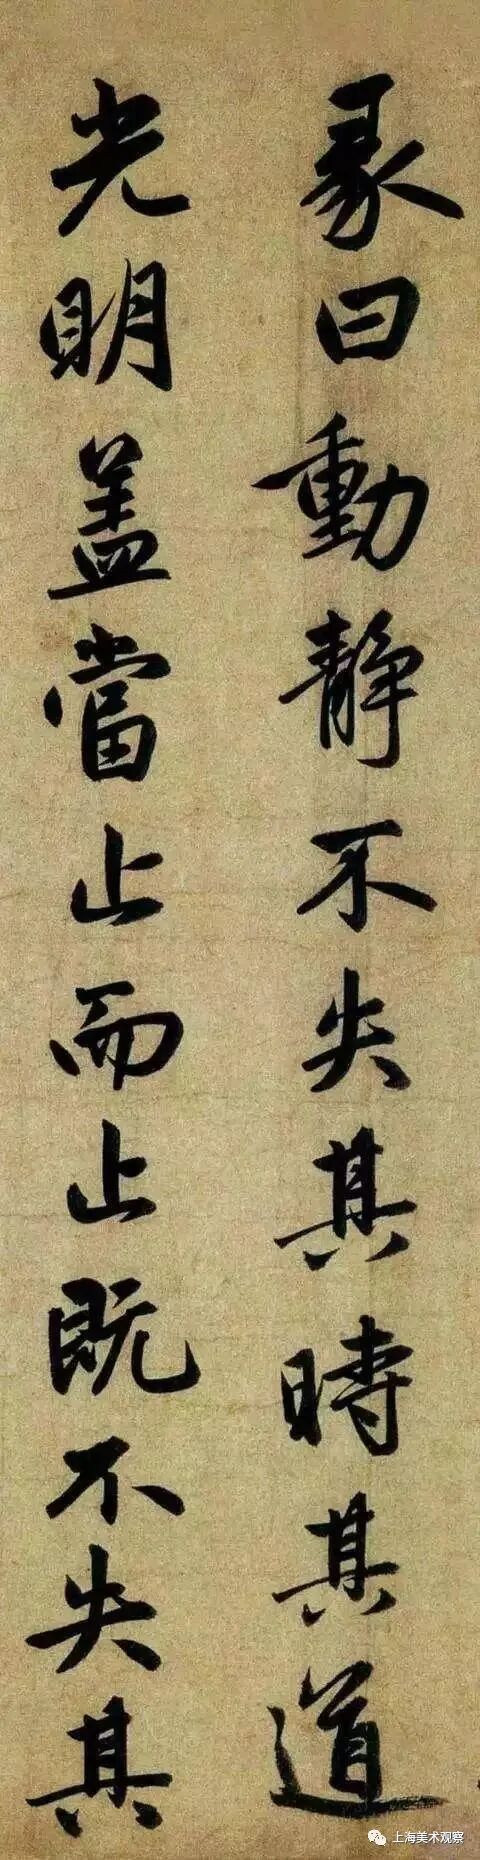 彖曰動靜不失其時其道
光明盖當止而止既不失其
上海美术观察